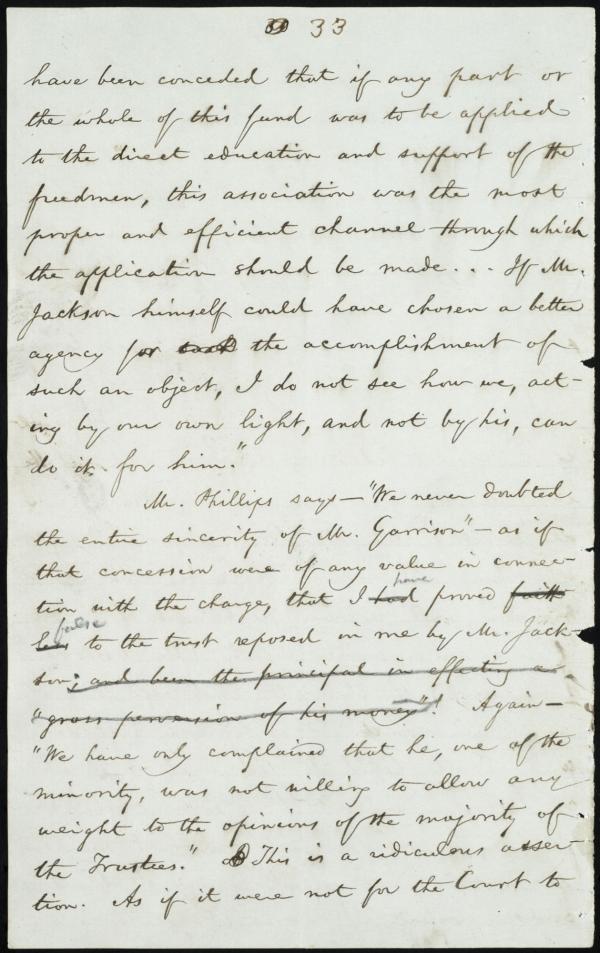 33
have been conceded that if any part or
the whole of this fund was to be applied
to the direct education and support of the
freedmen, this association was the most
proper and efficient channel through which
the application should be made... If Mr.
Jackson himself could have chosen a better
agency for the accomplishment of
such an object, I do not see how we, act-
ing by our own light, and not by his, can
do it for him."
Mr. Phillips says—"We never doubted
the entire sincerity of Mr. Garrison"—as if
that concession were of any value in connec-
have
tion with the charge, that I had proved faith
false
less to the trust reposed in me by Mr. Jack-
son; and been the principal in effecting a
"gross perversion of his money"! Again—
"We have only complained that he, one of the
minority, was not willing to allow any
weight to the opinions of the majority of
the Trustees." This is a ridiculous asser-
tion. As if it were not for the Court to